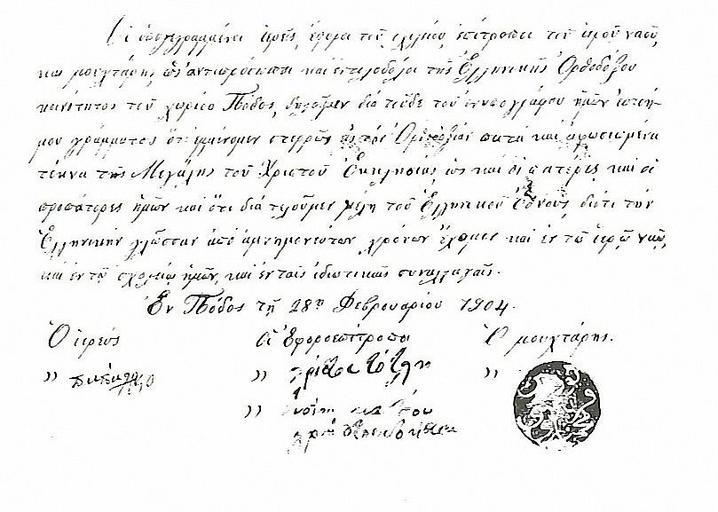 Οἱ ὑπογεγραμμένοι ἱερεῖς, ἔφοροι τοῦ σχολείου, ἐπίτροποι τοῦ ἱεροῦ ναοῦ,
καὶ μουχτάρης, ὡς ἀντιπρόσωποι καὶ ἐντολοδόχοι τῆς Ἑλληνικῆς Ὀρθοδόξου
κοινότητος τοῦ χωρίου Πόδος, δηλοῦμεν διὰ τοῦδε τοῦ ἐνυπογράφου ἡμῶν ἐπισή-
μου γράμματος ὅτι ἐμμένομεν στερρῶς εἰς τὴν Ὀρθοδοξίαν πιστὰ καὶ ἀφωσιωμένα
τέκνα τῆς Μεγάλης τοῦ Χριστοῦ Ἐκκλησίας ὡς καὶ οἱ πατέρες καὶ οἱ
προπάτορες ἡμῶν καὶ ὅτι διατελοῦμεν μέλη τοῦ Ἑλληνικοῦ Ἔθνους, διότι τὴν
Ἑλληνικὴν γλῶσσαν ἀπὸ ἀμνημονεύτων χρόνων ἔχομεν καὶ ἐν τῷ ἱερῷ ναῷ,
καὶ ἐν τῷ σχολείῳ ἡμῶν, καὶ ἐν ταῖς ἰδιωτικαῖς συναλλαγαῖς.
Ἐν Πόδος τῇ 28ῃ Φεβρουαρίου 1904.
Ὁ ἱερεύς Οἱ Ἐφοροεπίτροποι Ὁ μουχτάρης.